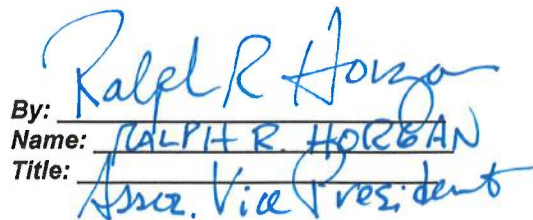 By: Ralph R Horgan
Name: RALPH R. HORGAN
Title: Assoc. Vice President